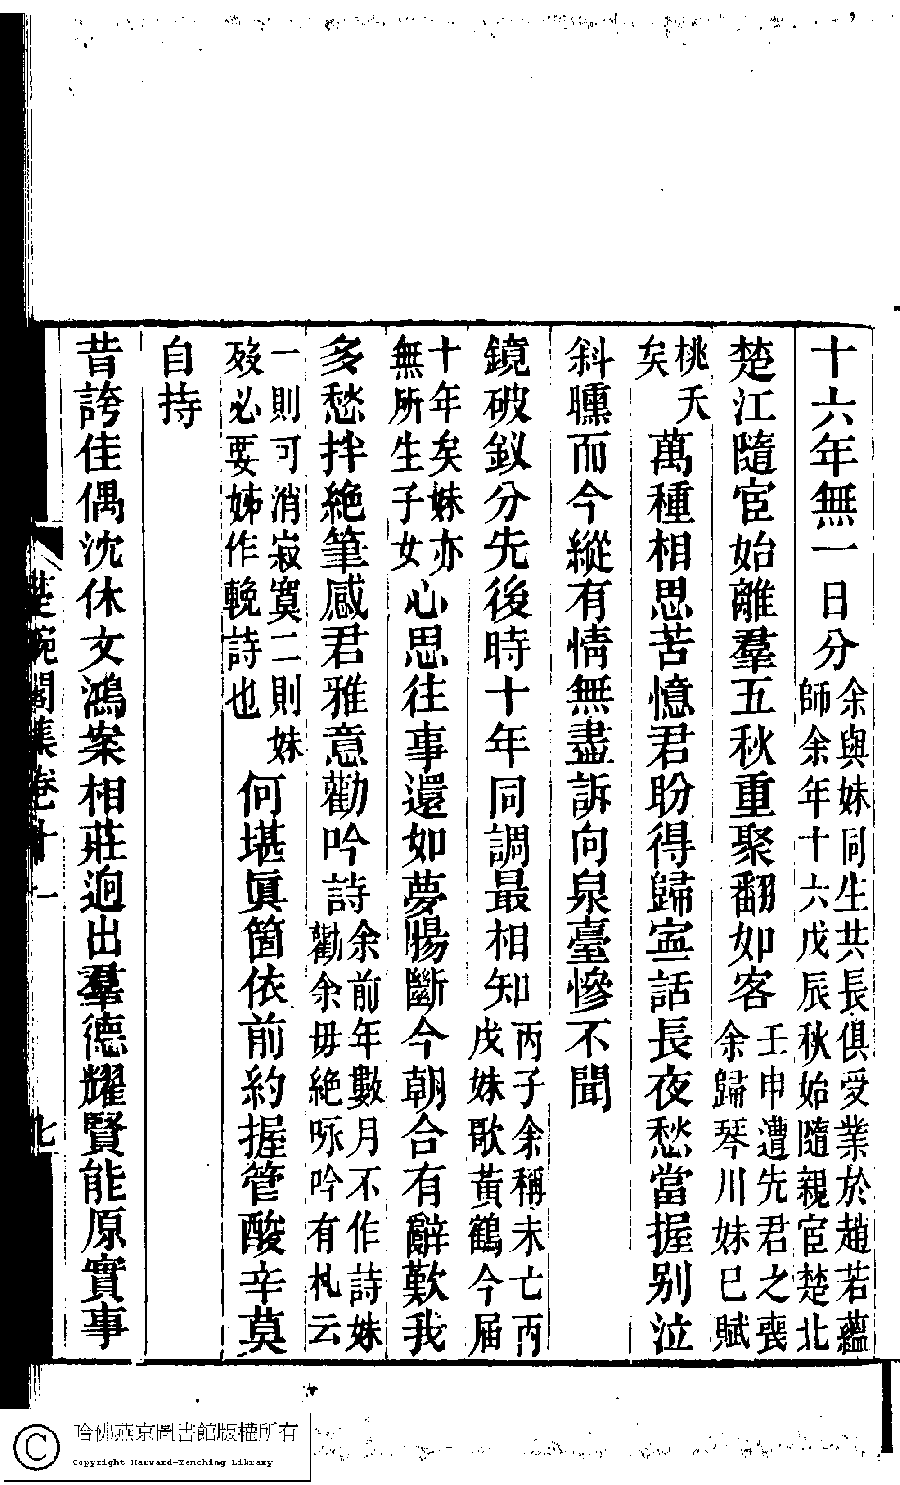 十六年無一日分余與妹同生共長俱受業於趙若蘊師余年十六戊辰秋始隨親宦楚北
楚江隨宦始離羣五秋重聚翻如客壬申遭先君之喪余歸琴川妹已賦
桃夭矣萬種相思苦憶君盼得歸寧話長夜愁當握別泣
斜曛而今縱有情無盡訴向泉臺慘不聞
鏡破釵分先後時十年同調最相知丙子余稱未亡丙戌妹歌黃鶴今届
十年矣妹亦無所生子女心思往事還如夢腸斷今朝合有辭歎我
多愁拌絶筆感君雅意勸吟詩余前年數月不作詩妹勸余毋絶咏吟有札云
一則可消寂寞二則妹歿必要姊作輓詩也何堪眞箇依前約握管酸辛莫
自持
昔誇佳偶沈休文鴻案相莊迥出羣德耀賢能原實事
楚畹閣集卷十一
九
哈佛燕京圖書館版權所有
Copyright Harvard-Yenching Library